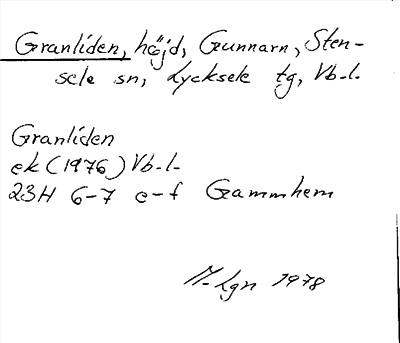 Granliden, höjd, Gunnarn, Sten-
sele sn, Lycksele tg, Vb.l.
Granliden
ek (1976) Vb.l.
23H 6-7 e-f Gammhem
M-Lgn 1978